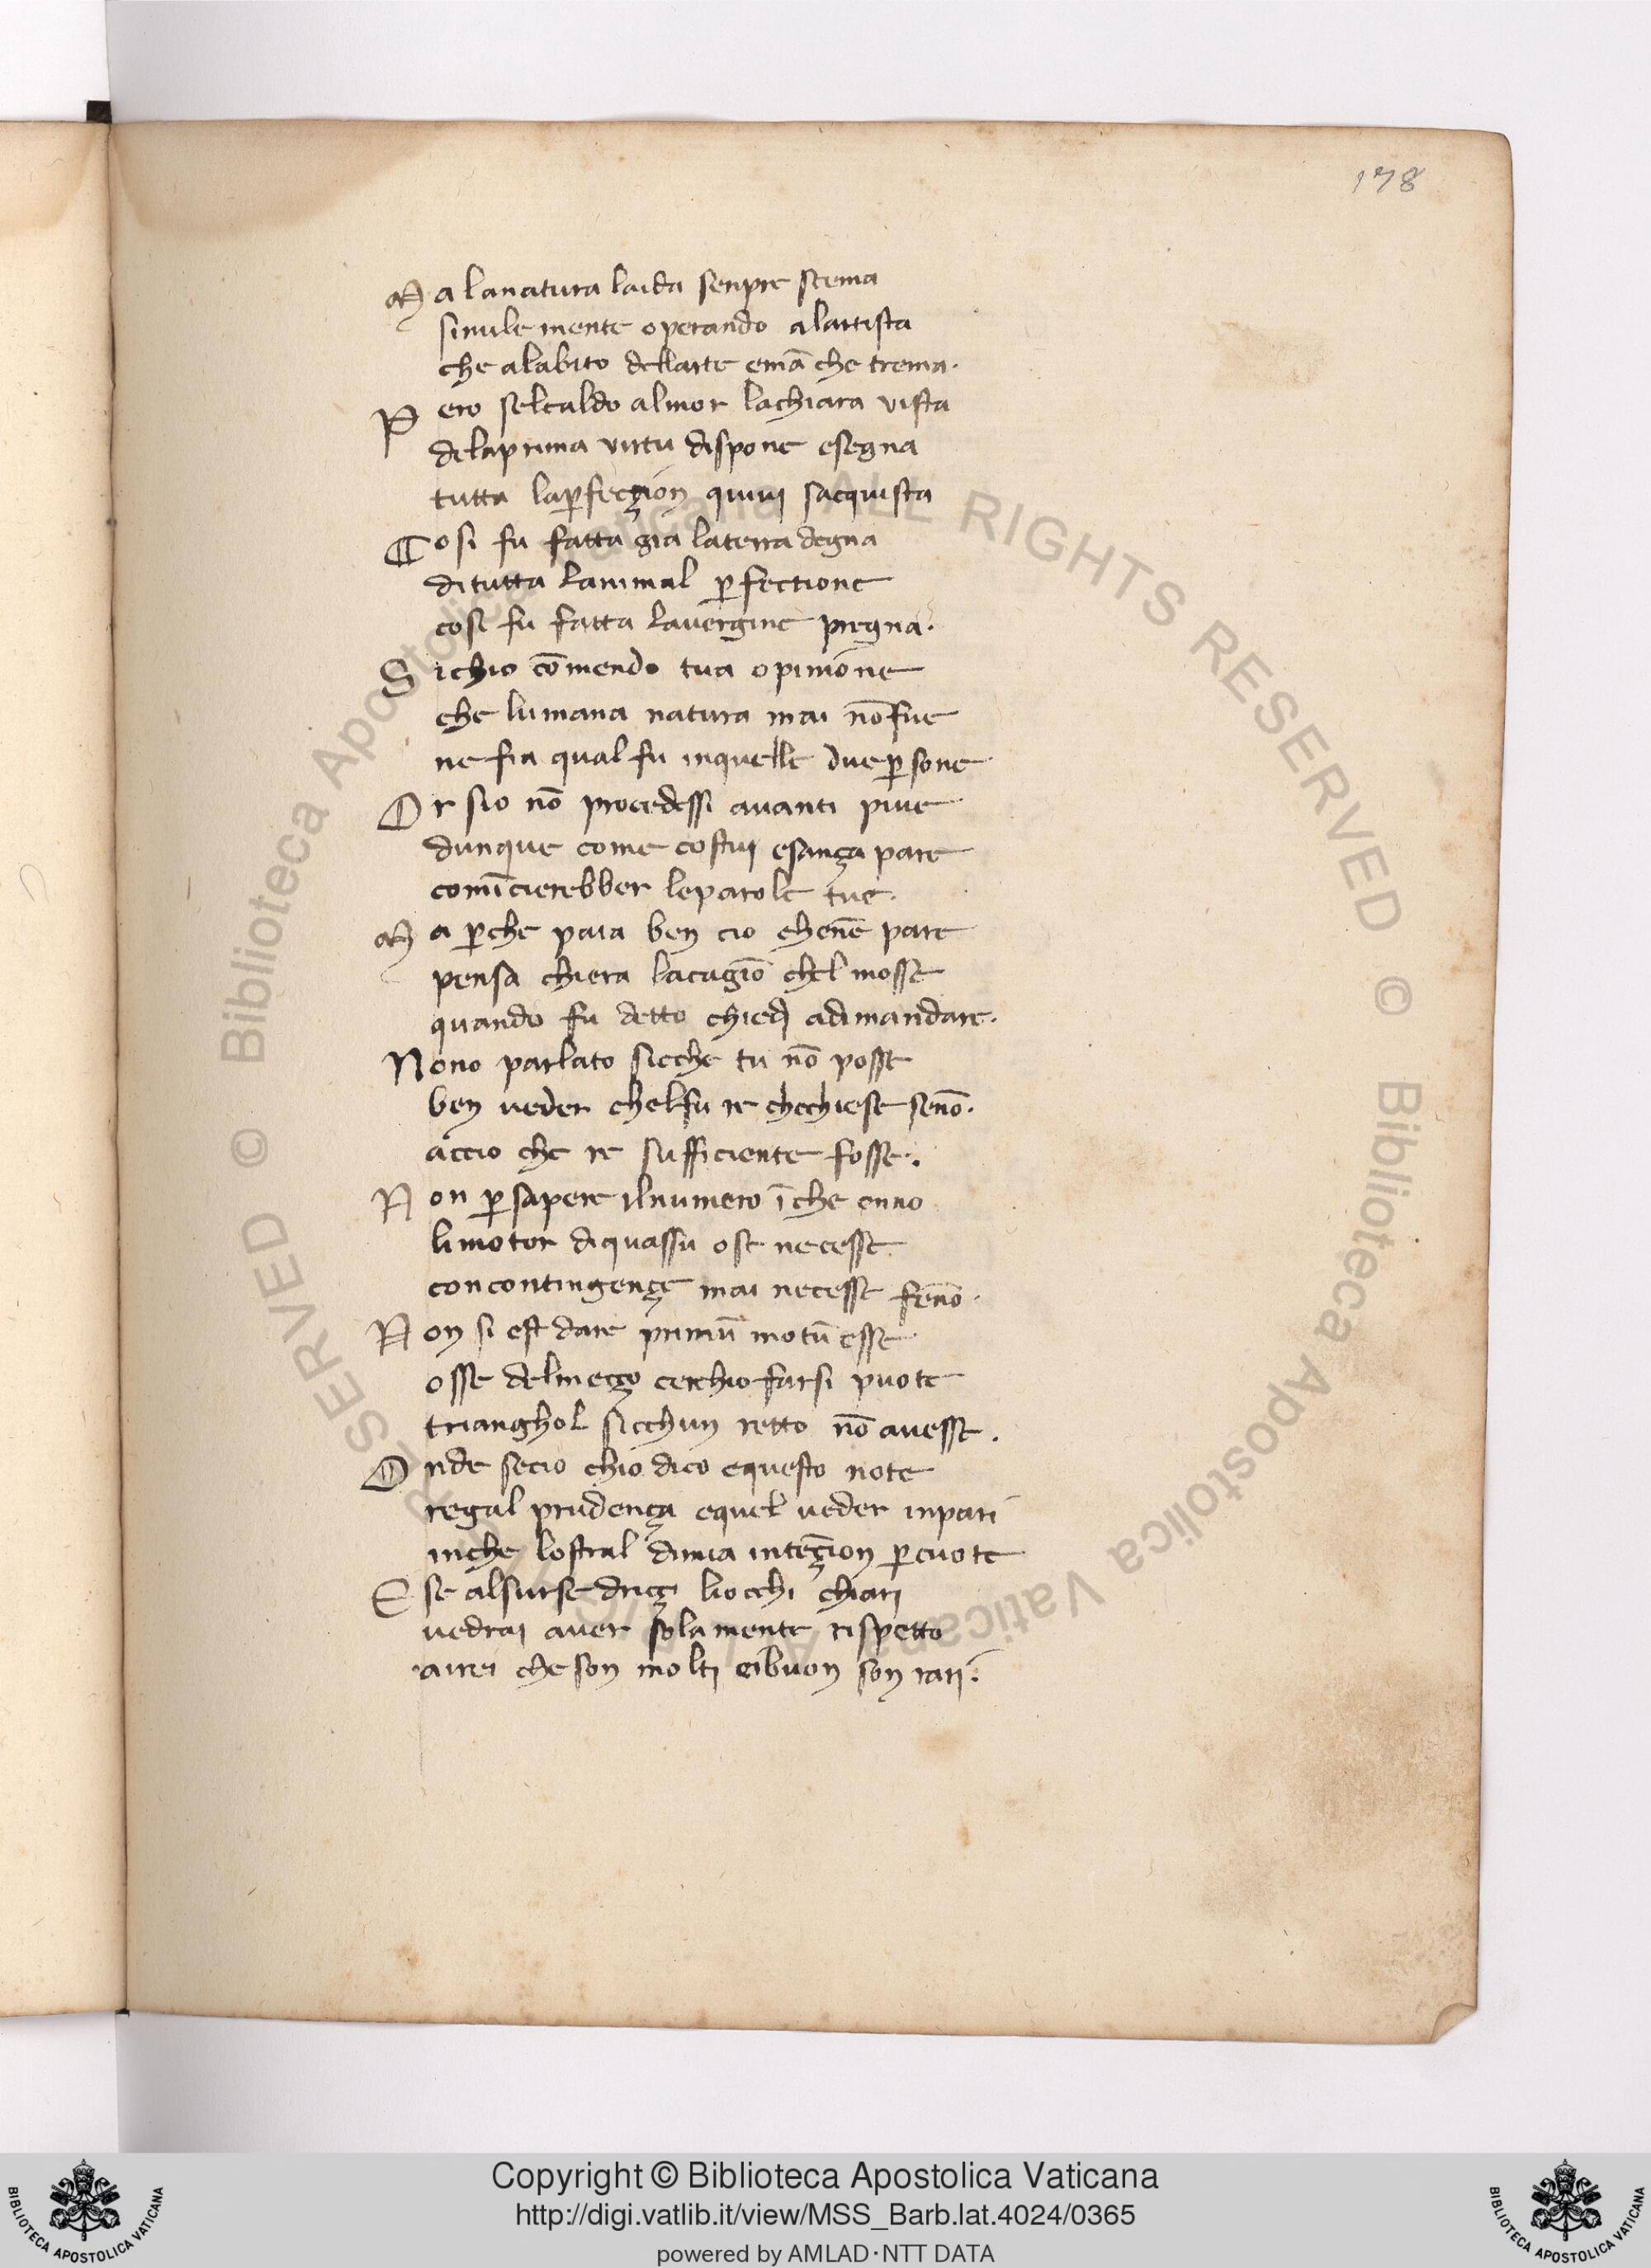 178
Ma lanatura laida senpre scema
simile mente operando alartista
che alabito dellarte emā che trema.
Pero selcaldo almor lachiara vista
delaprima virtu dispone esegna
tutta lapfeççion quiuj sacquista
Cosi fu fatta gia laterra degna
ditutta lanimal pfectione
cosi fu fatta lauergine pregna.
Sichio cōmendo tua opinione
che lumana natura mai nōfue
ne fia qual fu inquelle duepsone
Or sio nō procedessi auanti piue
dunque come costuj esança pare
comīcierebber leparole tue.
Ma pche paia ben cio chenē pare
pensa chiera lacagiō chel mosse
quando fu detto chiedj adimandare.
Nono parlato sicche tu nō posse
ben ueder chelfu re chechiese senō.
accio che re sufficiente fosse.
Non psapere ilnumero īche enno
limotor diquassu ose necesse
concontingençe mai necesse fēnō.
Non si est dare primū motū esse
osse delmeçço cerchio farsi puote
trianghol sicchun retto nō auesse.
Onde secio chio dico equesto note
regal prudença equel ueder inpari
inche lostral dimia intēçion pcuote
Ese alsurse driçç liocchi chiarj
uedraj auer solamente rispetto
airei che son moltj eibuon son rarj.
Copyright © Biblioteca Apostolica Vaticana
http://digi.vatlib.it/view/MSS_Barb.lat.4024/0365
powered by AMLAD·NTT DATA
BIBLIOTECA APOSTOLICA VATICANA
BIBLIOTECA APOSTOLICA VATICANA
© Biblioteca Apostolica Vaticana ALL RIGHTS RESERVED © Biblioteca Apostolica Vaticana ALL RIGHTS RESERVED